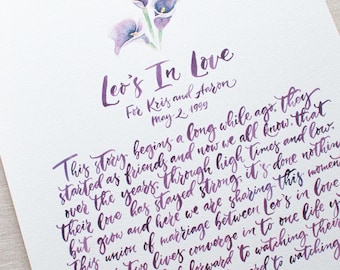 Leo's In Love
For Kris and Aaron
May 2, 1999
This story, begins a long while ago, they
started as friends and now we all know, that
over the years, through high times and low,
their love has stayed strong, it's done nothing
but grow and here we are sharing this moment
this union of marriage between Leo's in love
two lives converge in to one life
forward to watching their
to watching